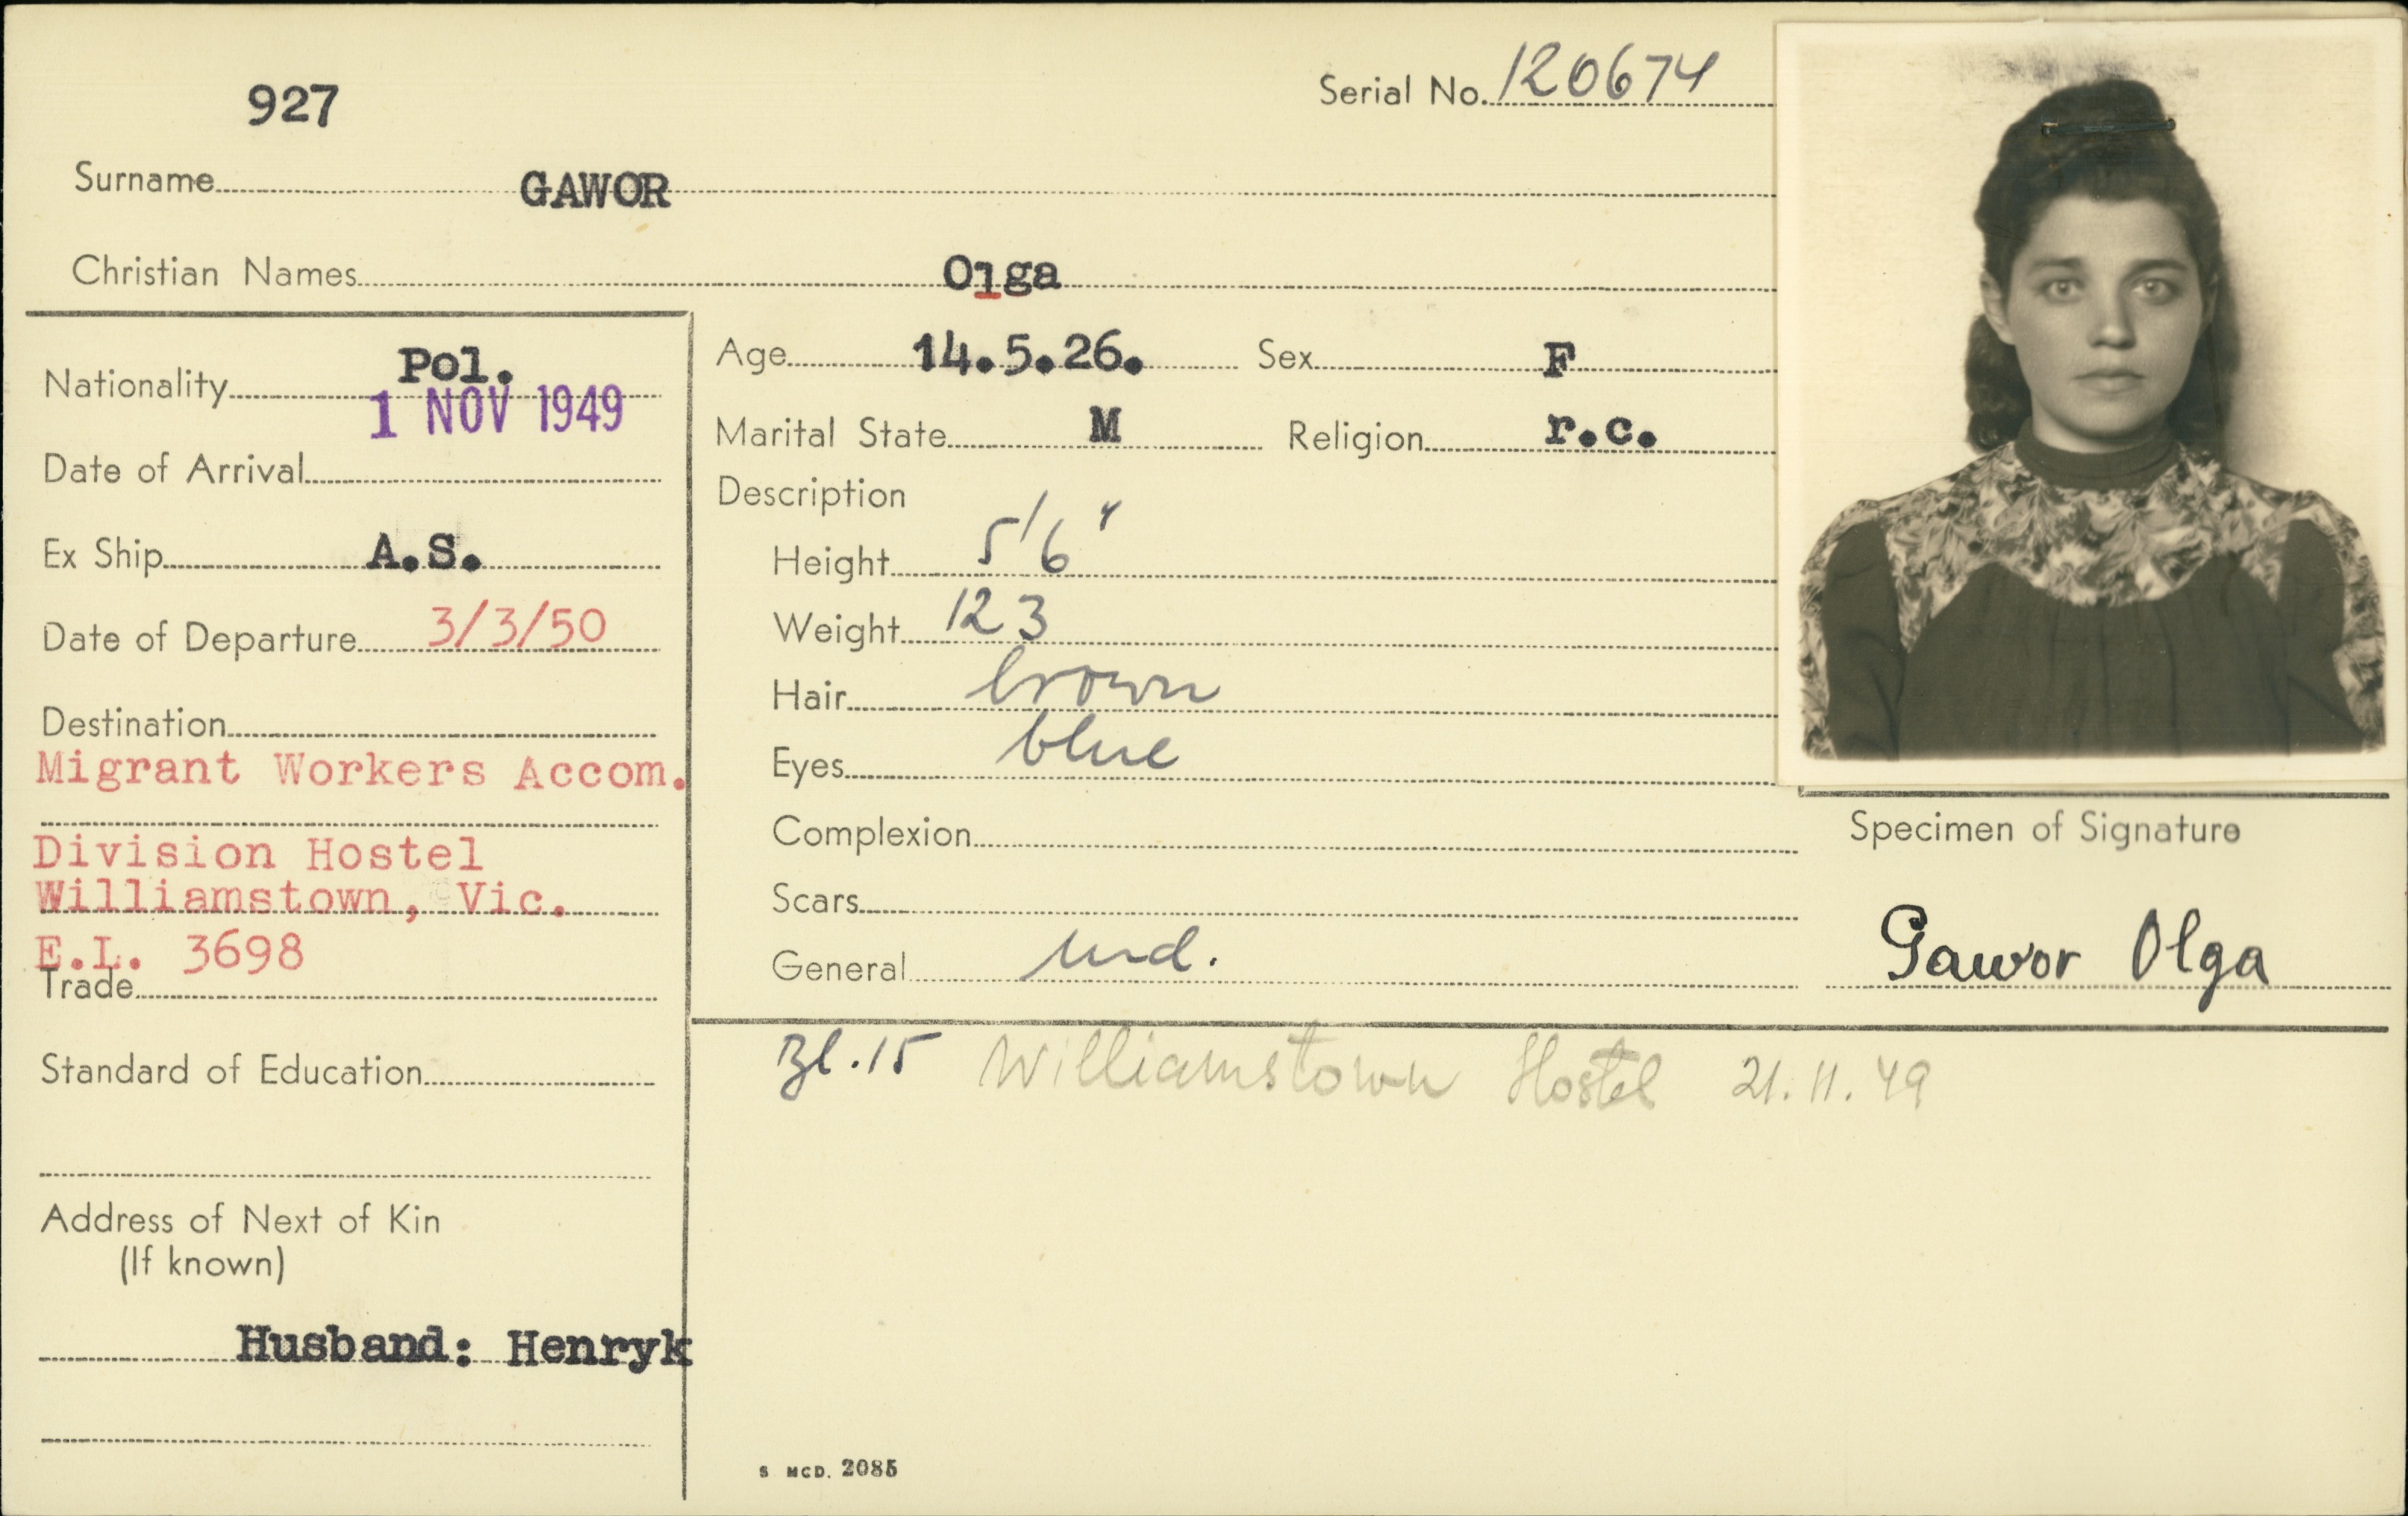 927
Serial No. 120674
Surname GAWOR
Christian Names Olga
Nationality Pol.
1 NOV 1949
Date of Arrival
Ex Ship A.S.
Date of Departure 3/3/50
Destination
Migrant Workers Accom.
Division Hostel
Williamstown, Vic.
E.I. 3698
Trade
Standard of Education
Address of Next of Kin
(If known)
Husband: Henryk
Age 14.5.26. Sex F
Marital State M Religion r.c.
Description
Height 5'6"
Weight 123
Hair brown
Eyes blue
Complexion
Scars
General
Specimen of Signature
Gawor Olga
Bl.15 Williamstown Hostel 21.11.49
S MCD. 2085